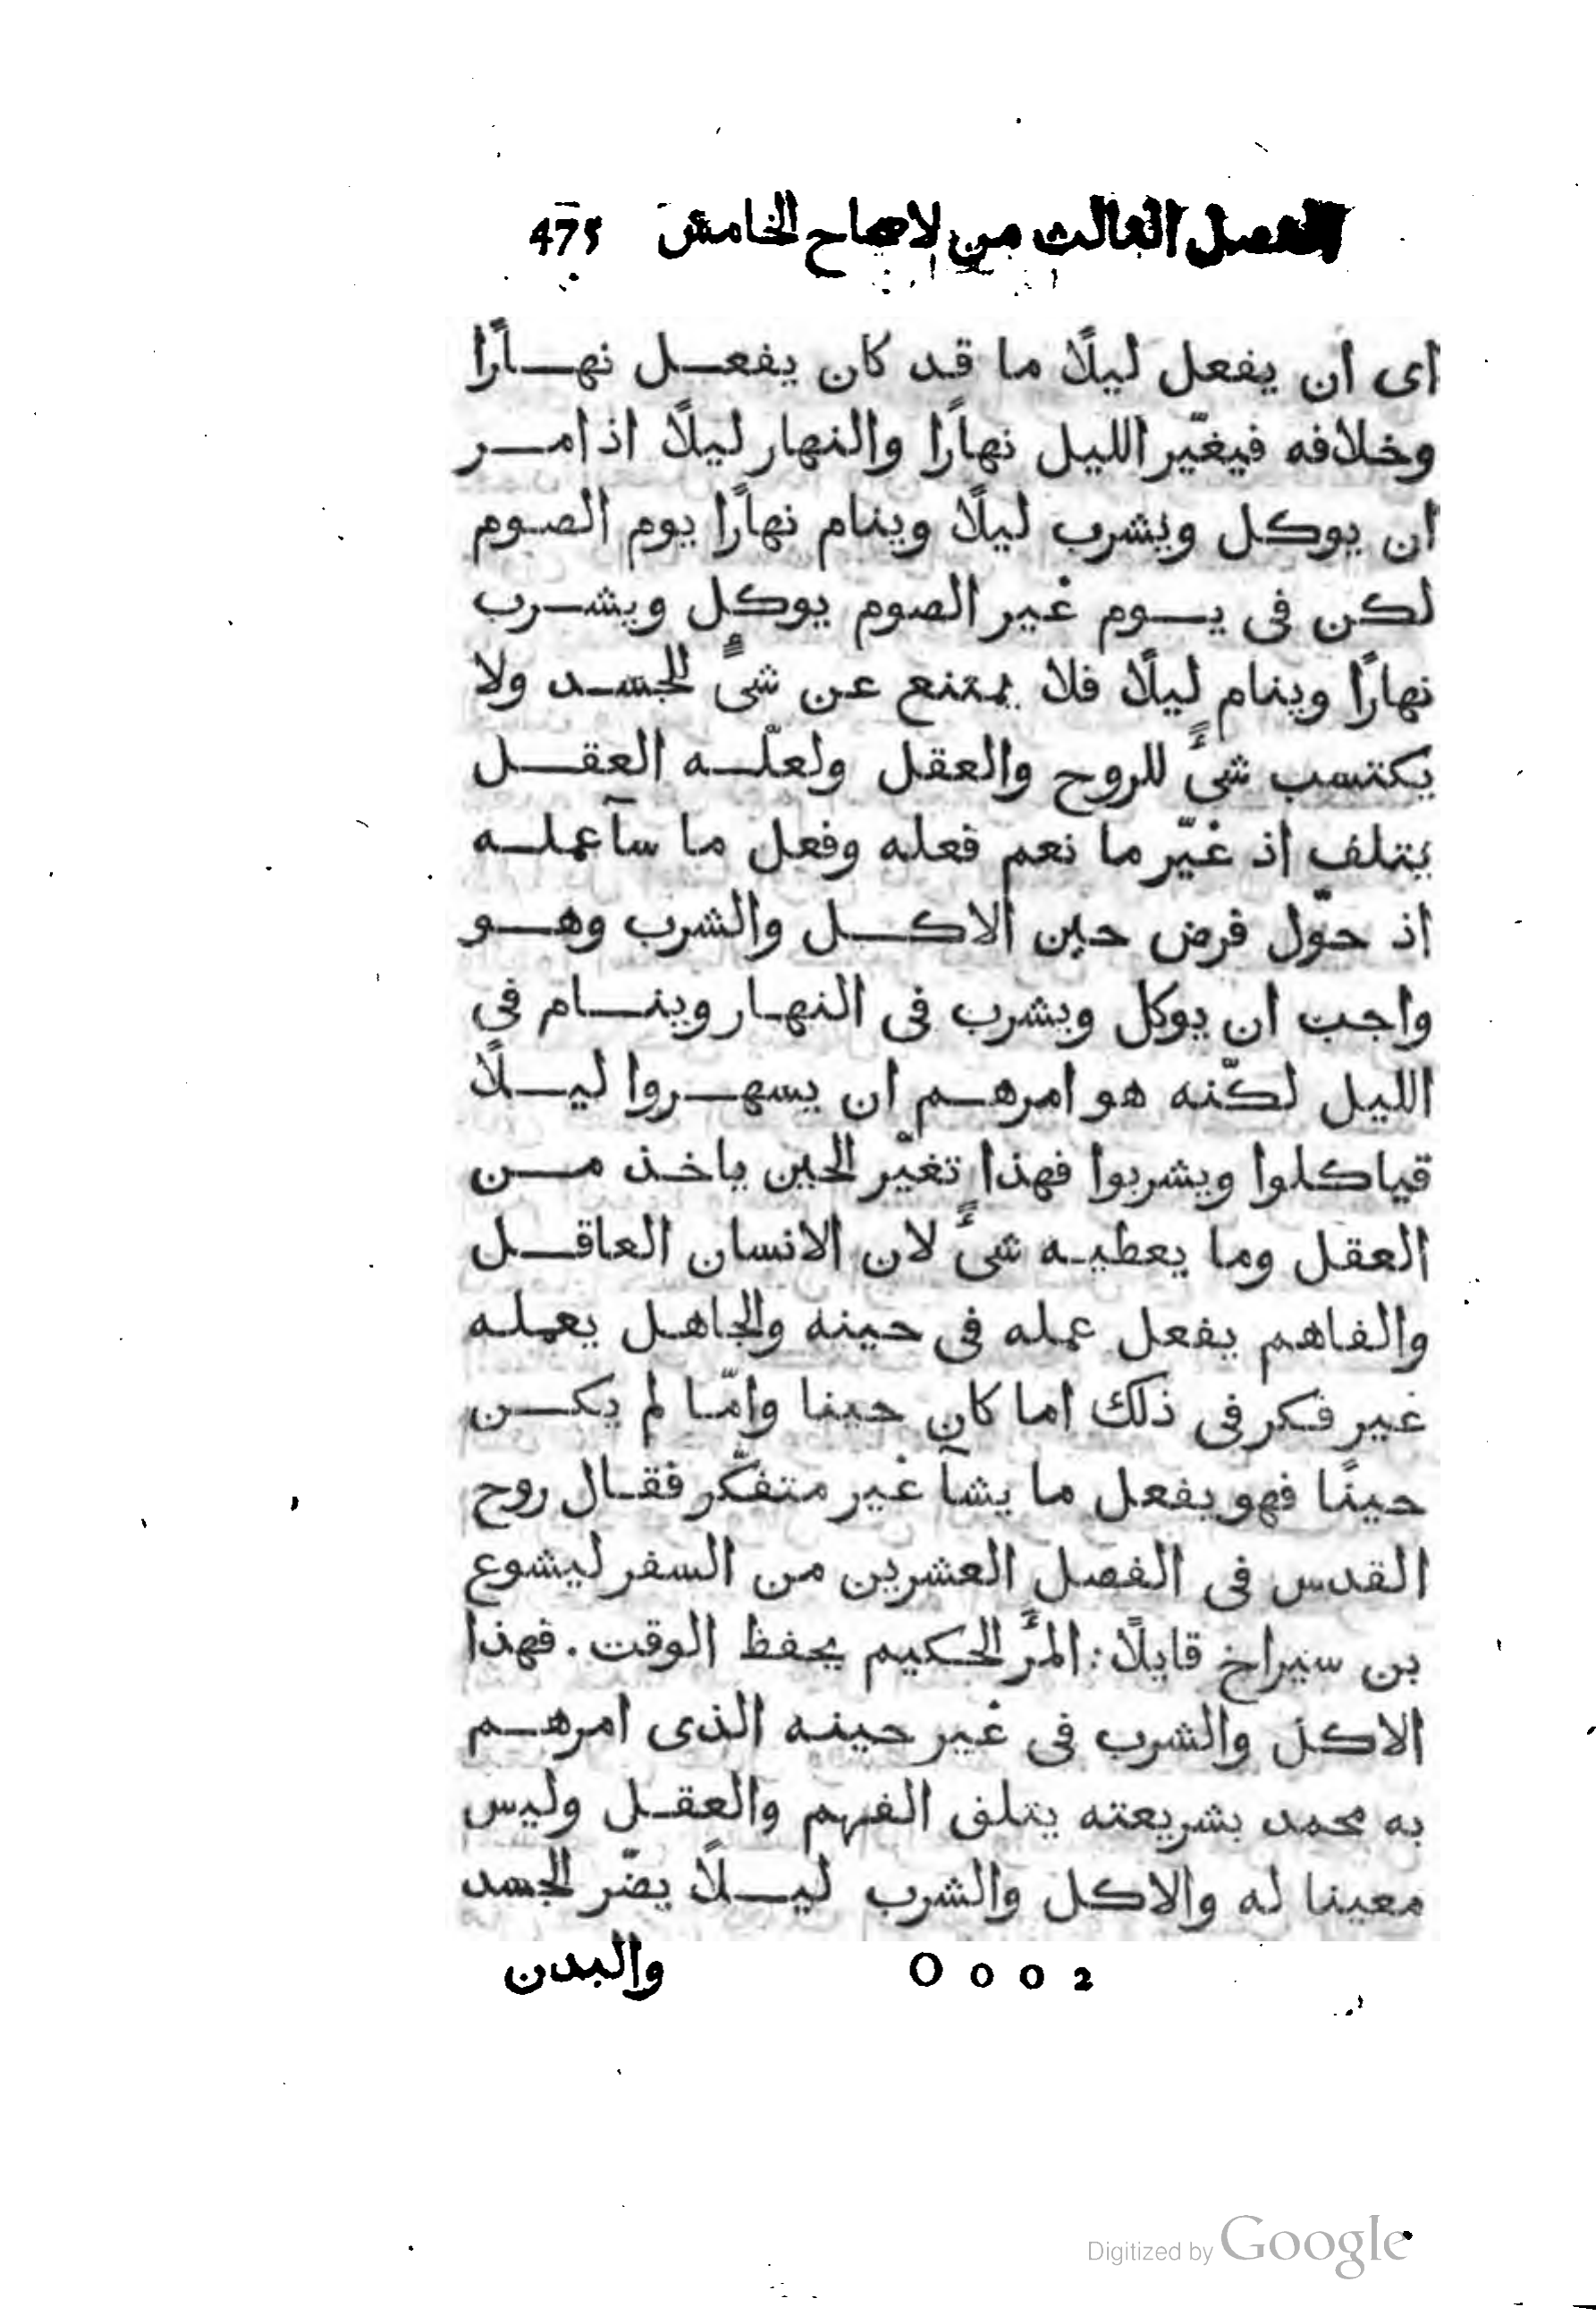 الفصل الثالث من لاصحاح الخامس 475
اى ان يفعل ليلًا ما قد كان يفعل نهارًا
وخلافه فيغيّر الليل نهارًا والنهار ليلًا اذ امر
ان يوكل ويشرب ليلًا وينام نهارًا يوم الصوم
لكن فى يوم غير الصوم يوكل ويشرب
نهارًا وينام ليلًا فلا يمتنع عن شىءً للجسد ولا
يكتسب شىءً للروح والعقل ولعلّه العقل
يتلف اذ غيّر ما نعم فعله وفعل ما سآ عمله
اذ حوّل فرض حين الاكل والشرب وهو
واجب ان يوكل ويشرب فى النهار وينام فى
الليل لكنّه هو امرهم ان يسهروا ليلًا
فياكلوا ويشربوا فهذا تغيّر الحين ياخذ من
العقل وما يعطيه شىءً لان الانسان العاقل
والفاهم يفعل عمله فى حينه والجاهل يعمله
غير فكر فى ذلك اما كان حينا وامّا لم يكن
حينًا فهو يفعل ما يشآ غير متفكّر فقال روح
القدس فى الفصل العشرين من السفر ليشوع
بن سيراخ قايلًا: المرءُ الحكيم يحفظ الوقت. فهذا
الاكل والشرب فى غير حينه الذى امرهم
به محمد بشريعته يتلف الفهم والعقل وليس
معينا له والاكل والشرب ليلًا يضّر الجسد
O o o 2 والبدن
Digitized by Google